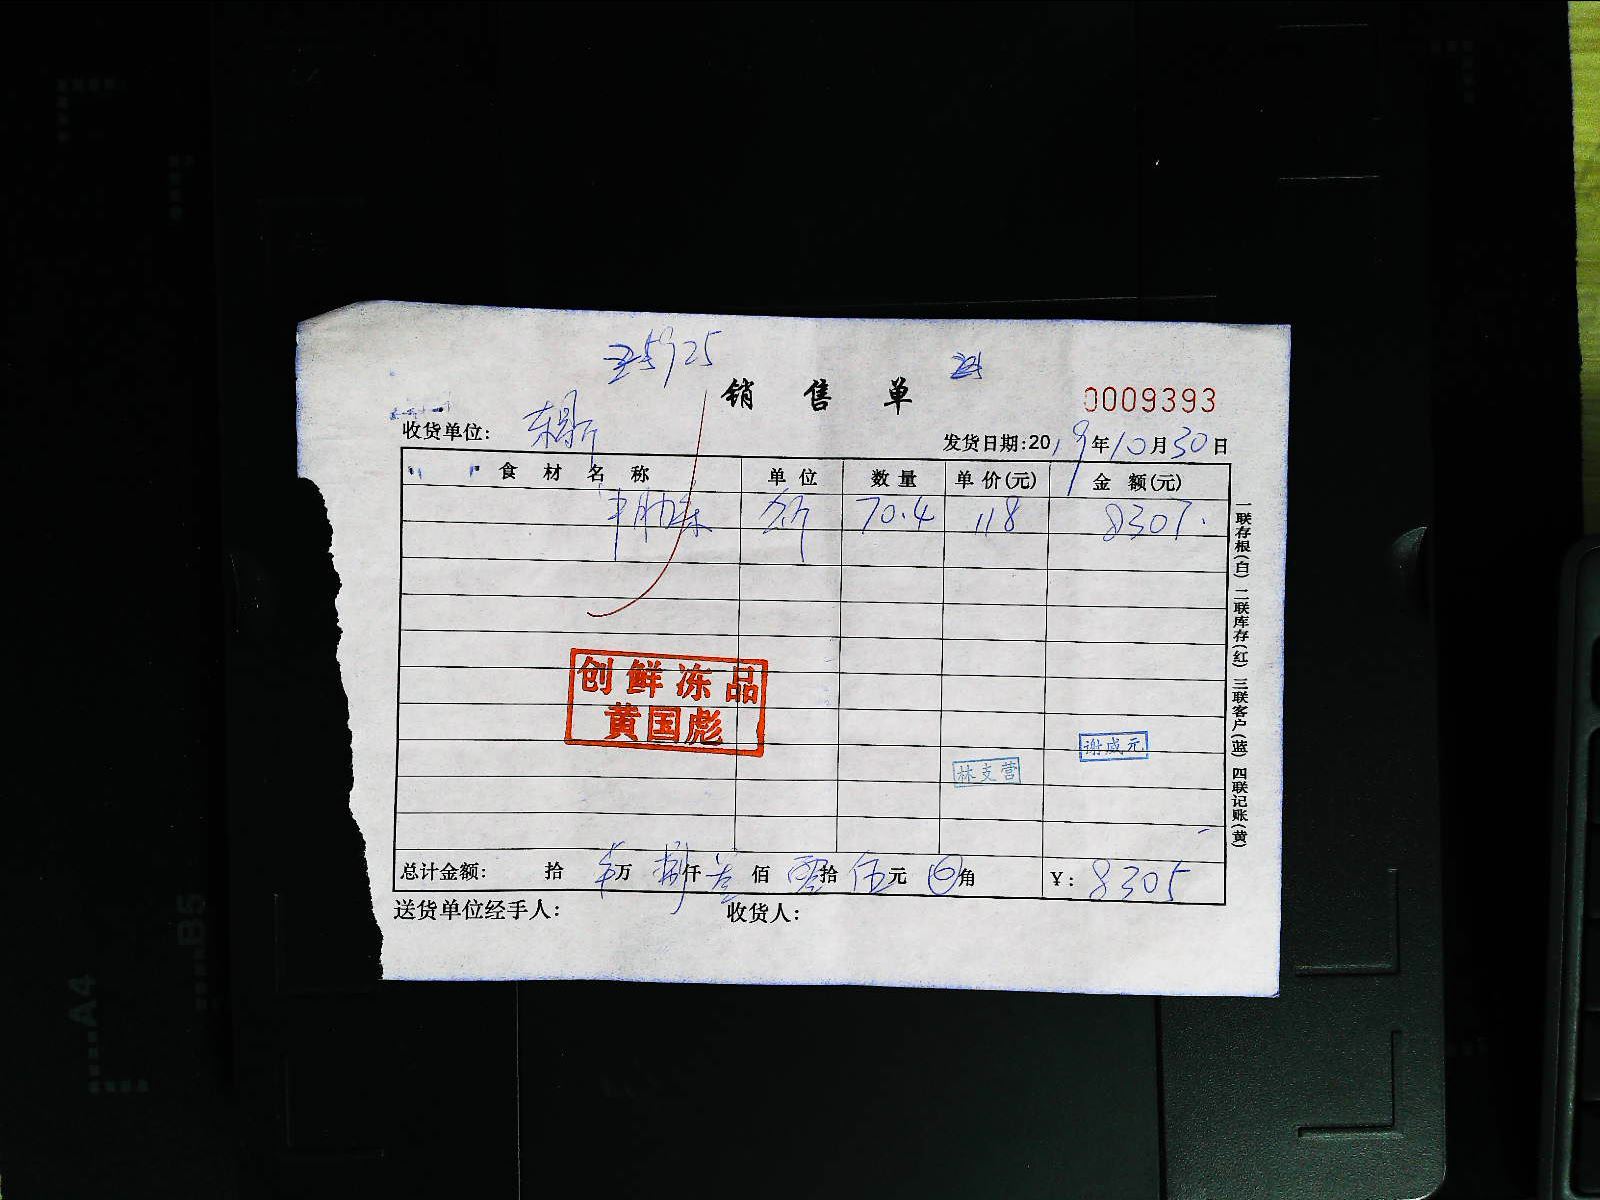 5925
销售单
0009393
收货单位:
发货日期:2019年10月30日
食材名称 单位 数量 单价(元) 金额(元)
斤 70.4 118 8307.
创鲜冻品
黄国彪
谢威元
林支营
总计金额: 拾 万 捌仟叁佰零拾伍元 角 ¥: 8305
送货单位经手人: 收货人:
一联存根(白) 二联库存(红) 三联客户(蓝) 四联记账(黄)
A4
B5